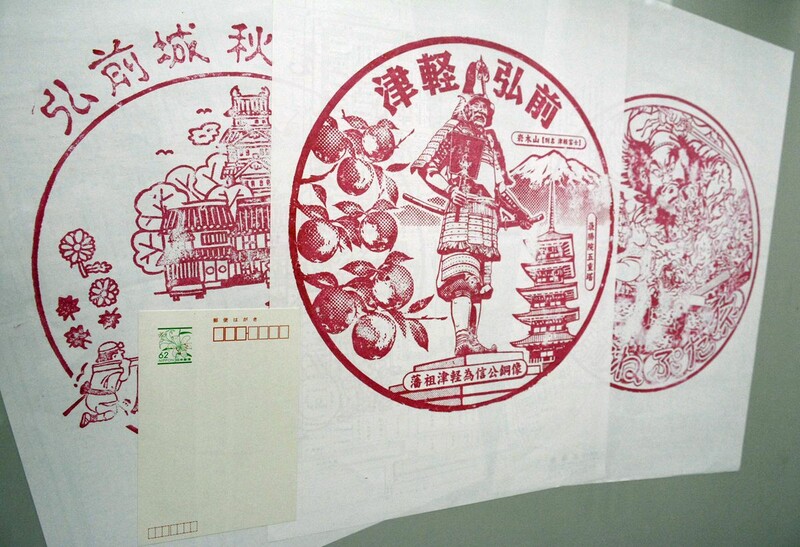 弘前城 秋
津軽 弘前
岩木山【別名 津軽富士】
最勝院五重塔
藩祖津軽為信公銅像
郵便はがき
62